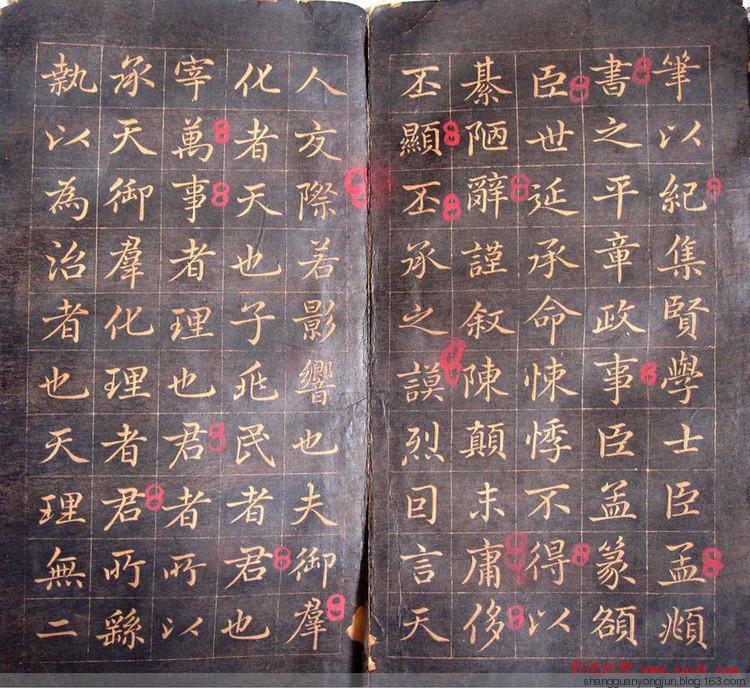 筆以紀集賢學士臣孟兆
書之平章政事臣孟篆額
臣世延承命悚悸不得以
綦陋辭謹叙陳顛末庸侈
丕顯丕承之謨烈囙言天
人交際若影響也夫御羣
化者天也子兆民者君也
宰萬事者理也君者所以
承天御羣化理者君所繇
執以為治者也天理無二
shangguanyongjun.blog.163.com